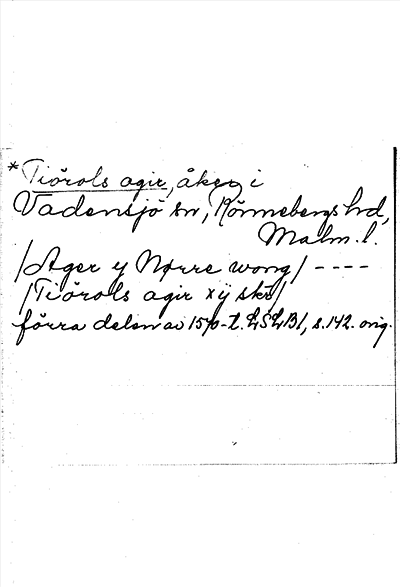 *Tiörols agir, åker i
Vadensjö sn, Rönnebergs hd,
Malm. l.
/Ager y Nørre wong/ ----
/Tiörols agir x ÿ skr/
förra delen av 1570-t. LSLB1, s. 142. orig.